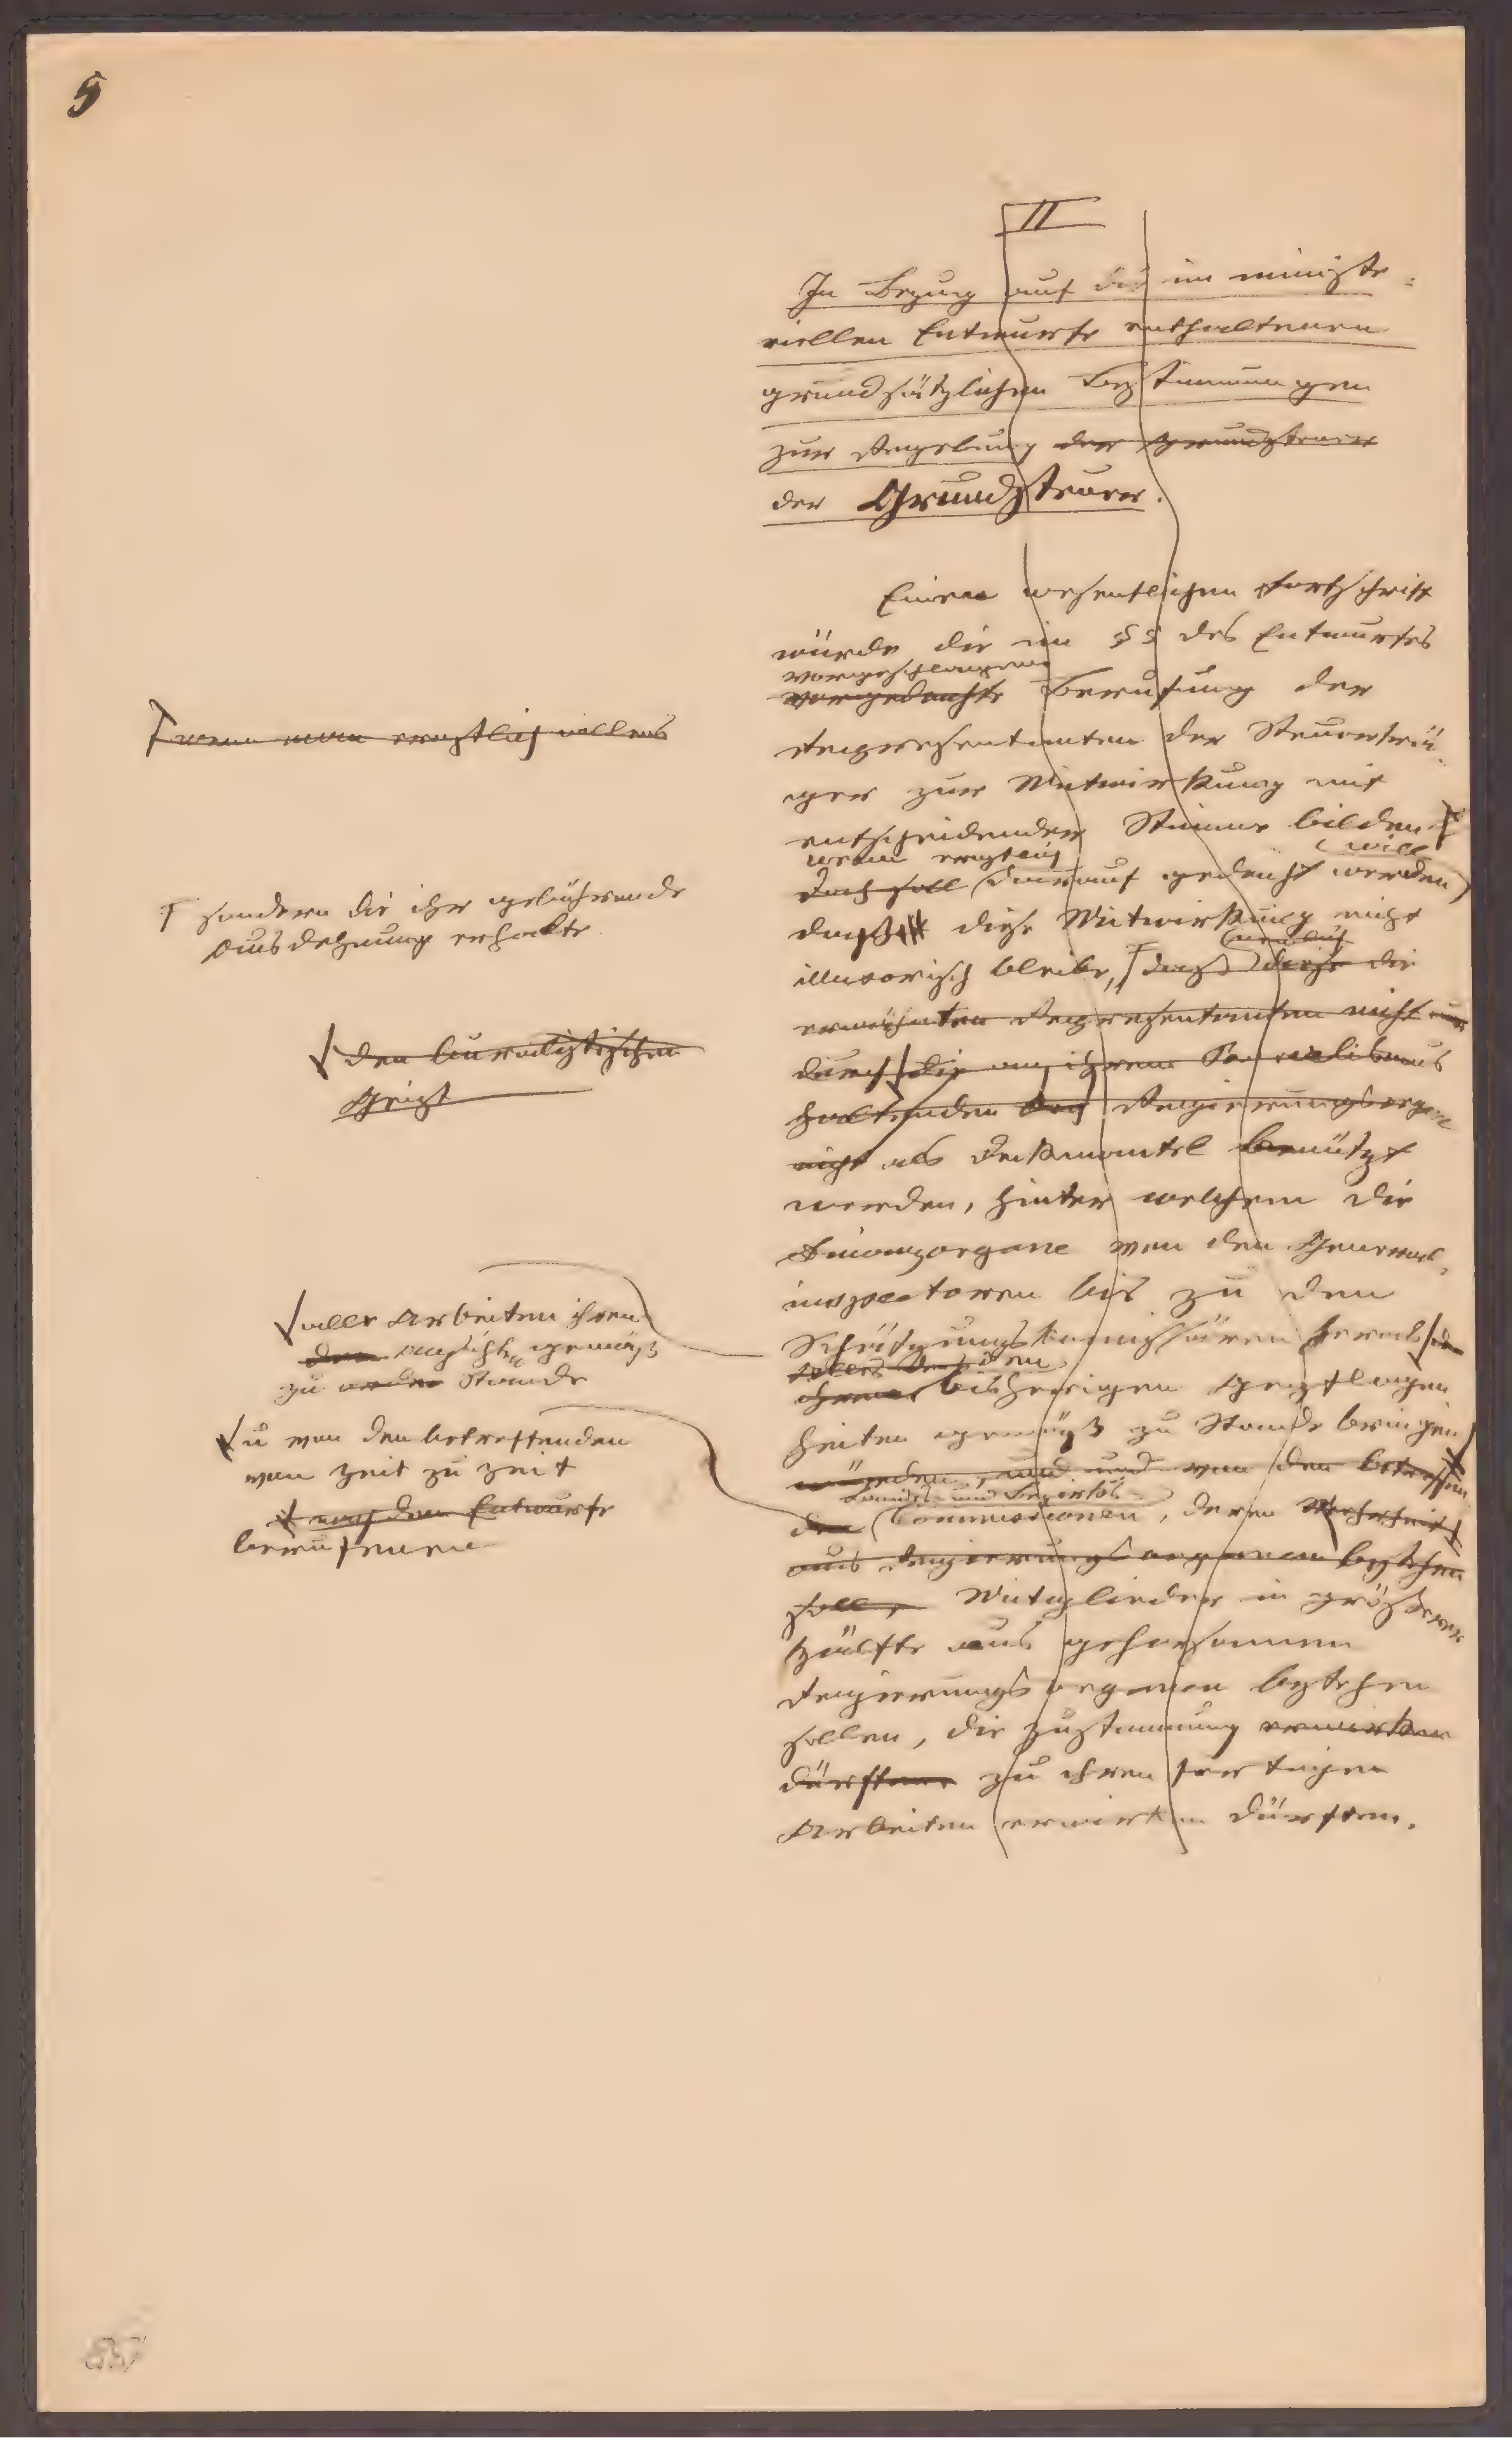 5
II
In Bezug auf die im ministe-
riellen Entwurfe enthaltenen
grundsätzlichen Bestimmungen
zur Regelung der Grundsteuer
der Grundsteuer.
Einen wesentlichen Fortschritt
würde die im §§ des Entwurfes
vorgeschlagene
vorgedachte Berufung der
Representanten der Steuerträ-
ger zur Mitwirkung mit
entscheidender Stimme bilden
wenn ernstlich will
doch soll darauf gedacht werden
daß diese Mitwirkung nicht
illusorisch bleibe, daß diese die
erwähnten Representanten nicht nur
durch die an ihrem
haltenden Regierungsorgane
nicht als Deckmantel benützt
werden, hinter welchem die
Finanzorgane von den General-
inspectoren bis zu den
Schätzungskommissären herab
dem
bisherigen Gepflogen
heiten gemäß zu Stande bringen
würden, und und von den betreffen
Landes- und Bezirks
den Commissionen, deren Mehrheit
aus Regierungsorganen bestehen
soll, Mitglieder in größerer
Hälfte aus gehorsamen
Regierungsorganen bestehen
sollen, die Zustimmung erwirken
dürften zu ihren fertigen
Arbeiten erwirken dürften.
wenn man ernstlich willens
sondern die ihr gebührende
Ausdehnung erhalte
den bureaukratischen
Geist
alle Arbeiten ihren
den Ansichten gemäß
zu Stande
u von den betreffenden
von Zeit zu Zeit
nach dem Entwurfe
berufenen